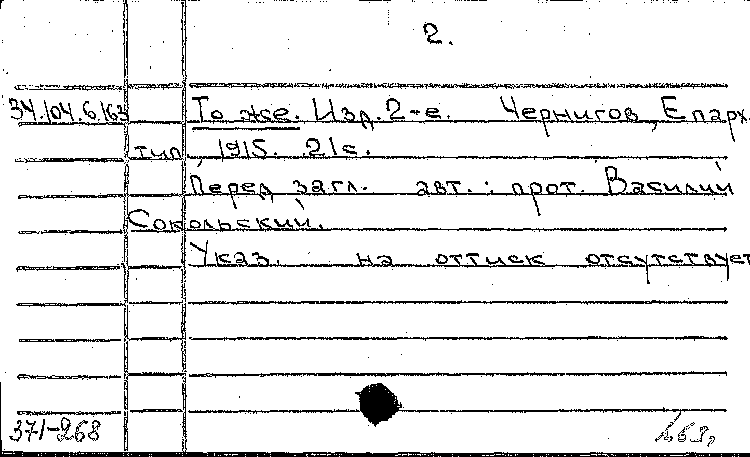 2.
34.104.6.163 То же. Изд. 2-е. Чернигов, Епарх.
тип 1915. 21с.
Перед загл. авт.: прот. Василий
Сокольский.
Указ. на оттиск отсутствует
371-268